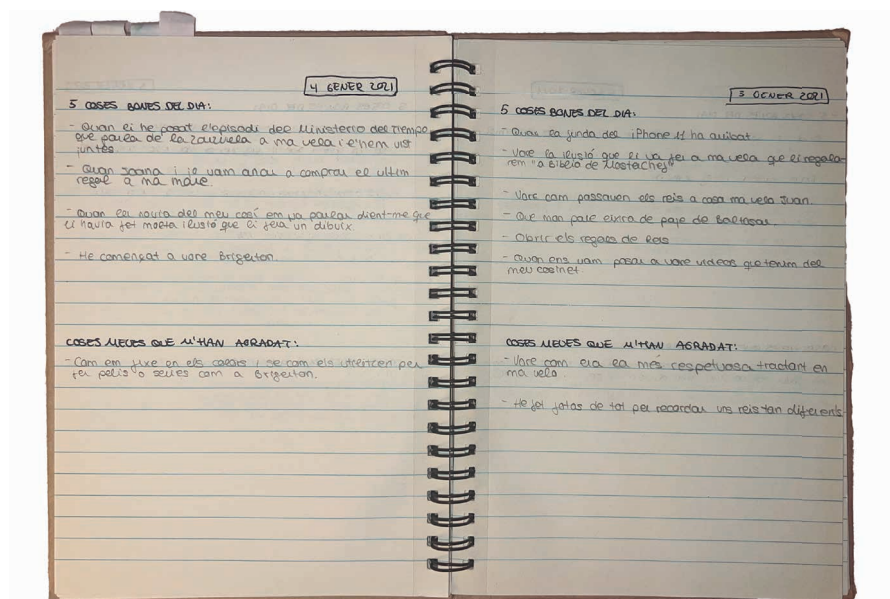 4 GENER 2021
5 COSES BONES DEL DIA:
- Quan li he posat l'episodi del Ministerio del Tiempo
que parla de la zarzuela a ma vela i l'hem vist
juntes.
- Quan Joana i jo vam anar a comprar el ultim
regal a ma mare
- Quan la novia del meu cosí em va parlar dient-me que
li havia fet molta ilusió que li fera un dibuix.
- He començat a vore Brigerton.
COSES MEVES QUE M'HAN AGRADAT:
- Com em fixe en els colors i se com els utilitzen per
fer pelis o series com a Brigerton.
5 GENER 2021
5 COSES BONES DEL DIA:
- Quan la funda del iPhone 11 ha arribat
- Vore la ilusió que li va fer a ma vela que li regala
rem "a Biblia de Mostaches"
- Vore com passaven els reis a casa ma vela Juan.
- Que mon pare eixira de paje de Baltasar.
- Obrir els regals de Reis
- Quan ens vam posar a vore videos que tenim del
meu cosinet.
COSES MEVES QUE M'HAN AGRADAT:
- Vore com era la més respetuosa tractant en
ma vela
- He fet fotos de tot per recordar uns reis tan diferents